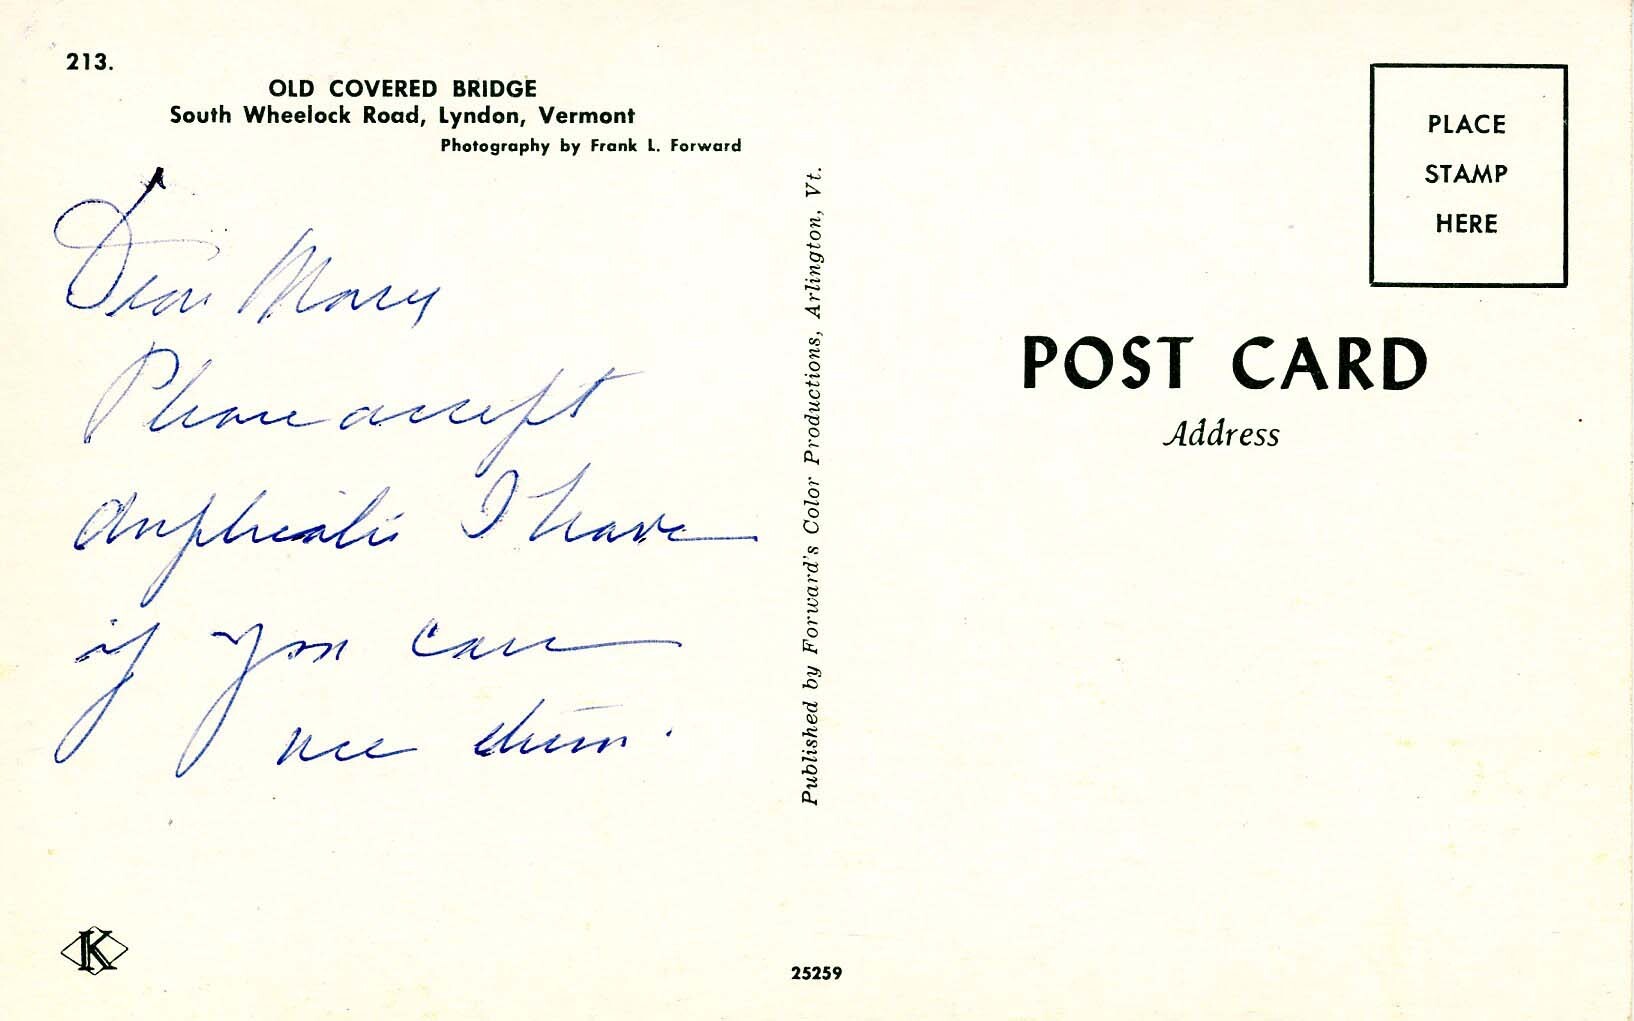 213.
OLD COVERED BRIDGE
South Wheelock Road, Lyndon, Vermont
Photography by Frank L. Forward
Dear Mary
Please accept
duplicates I have
if you can
use them.
Published by Forward's Color Productions, Arlington, Vt.
PLACE
STAMP
HERE
POST CARD
Address
K
25259